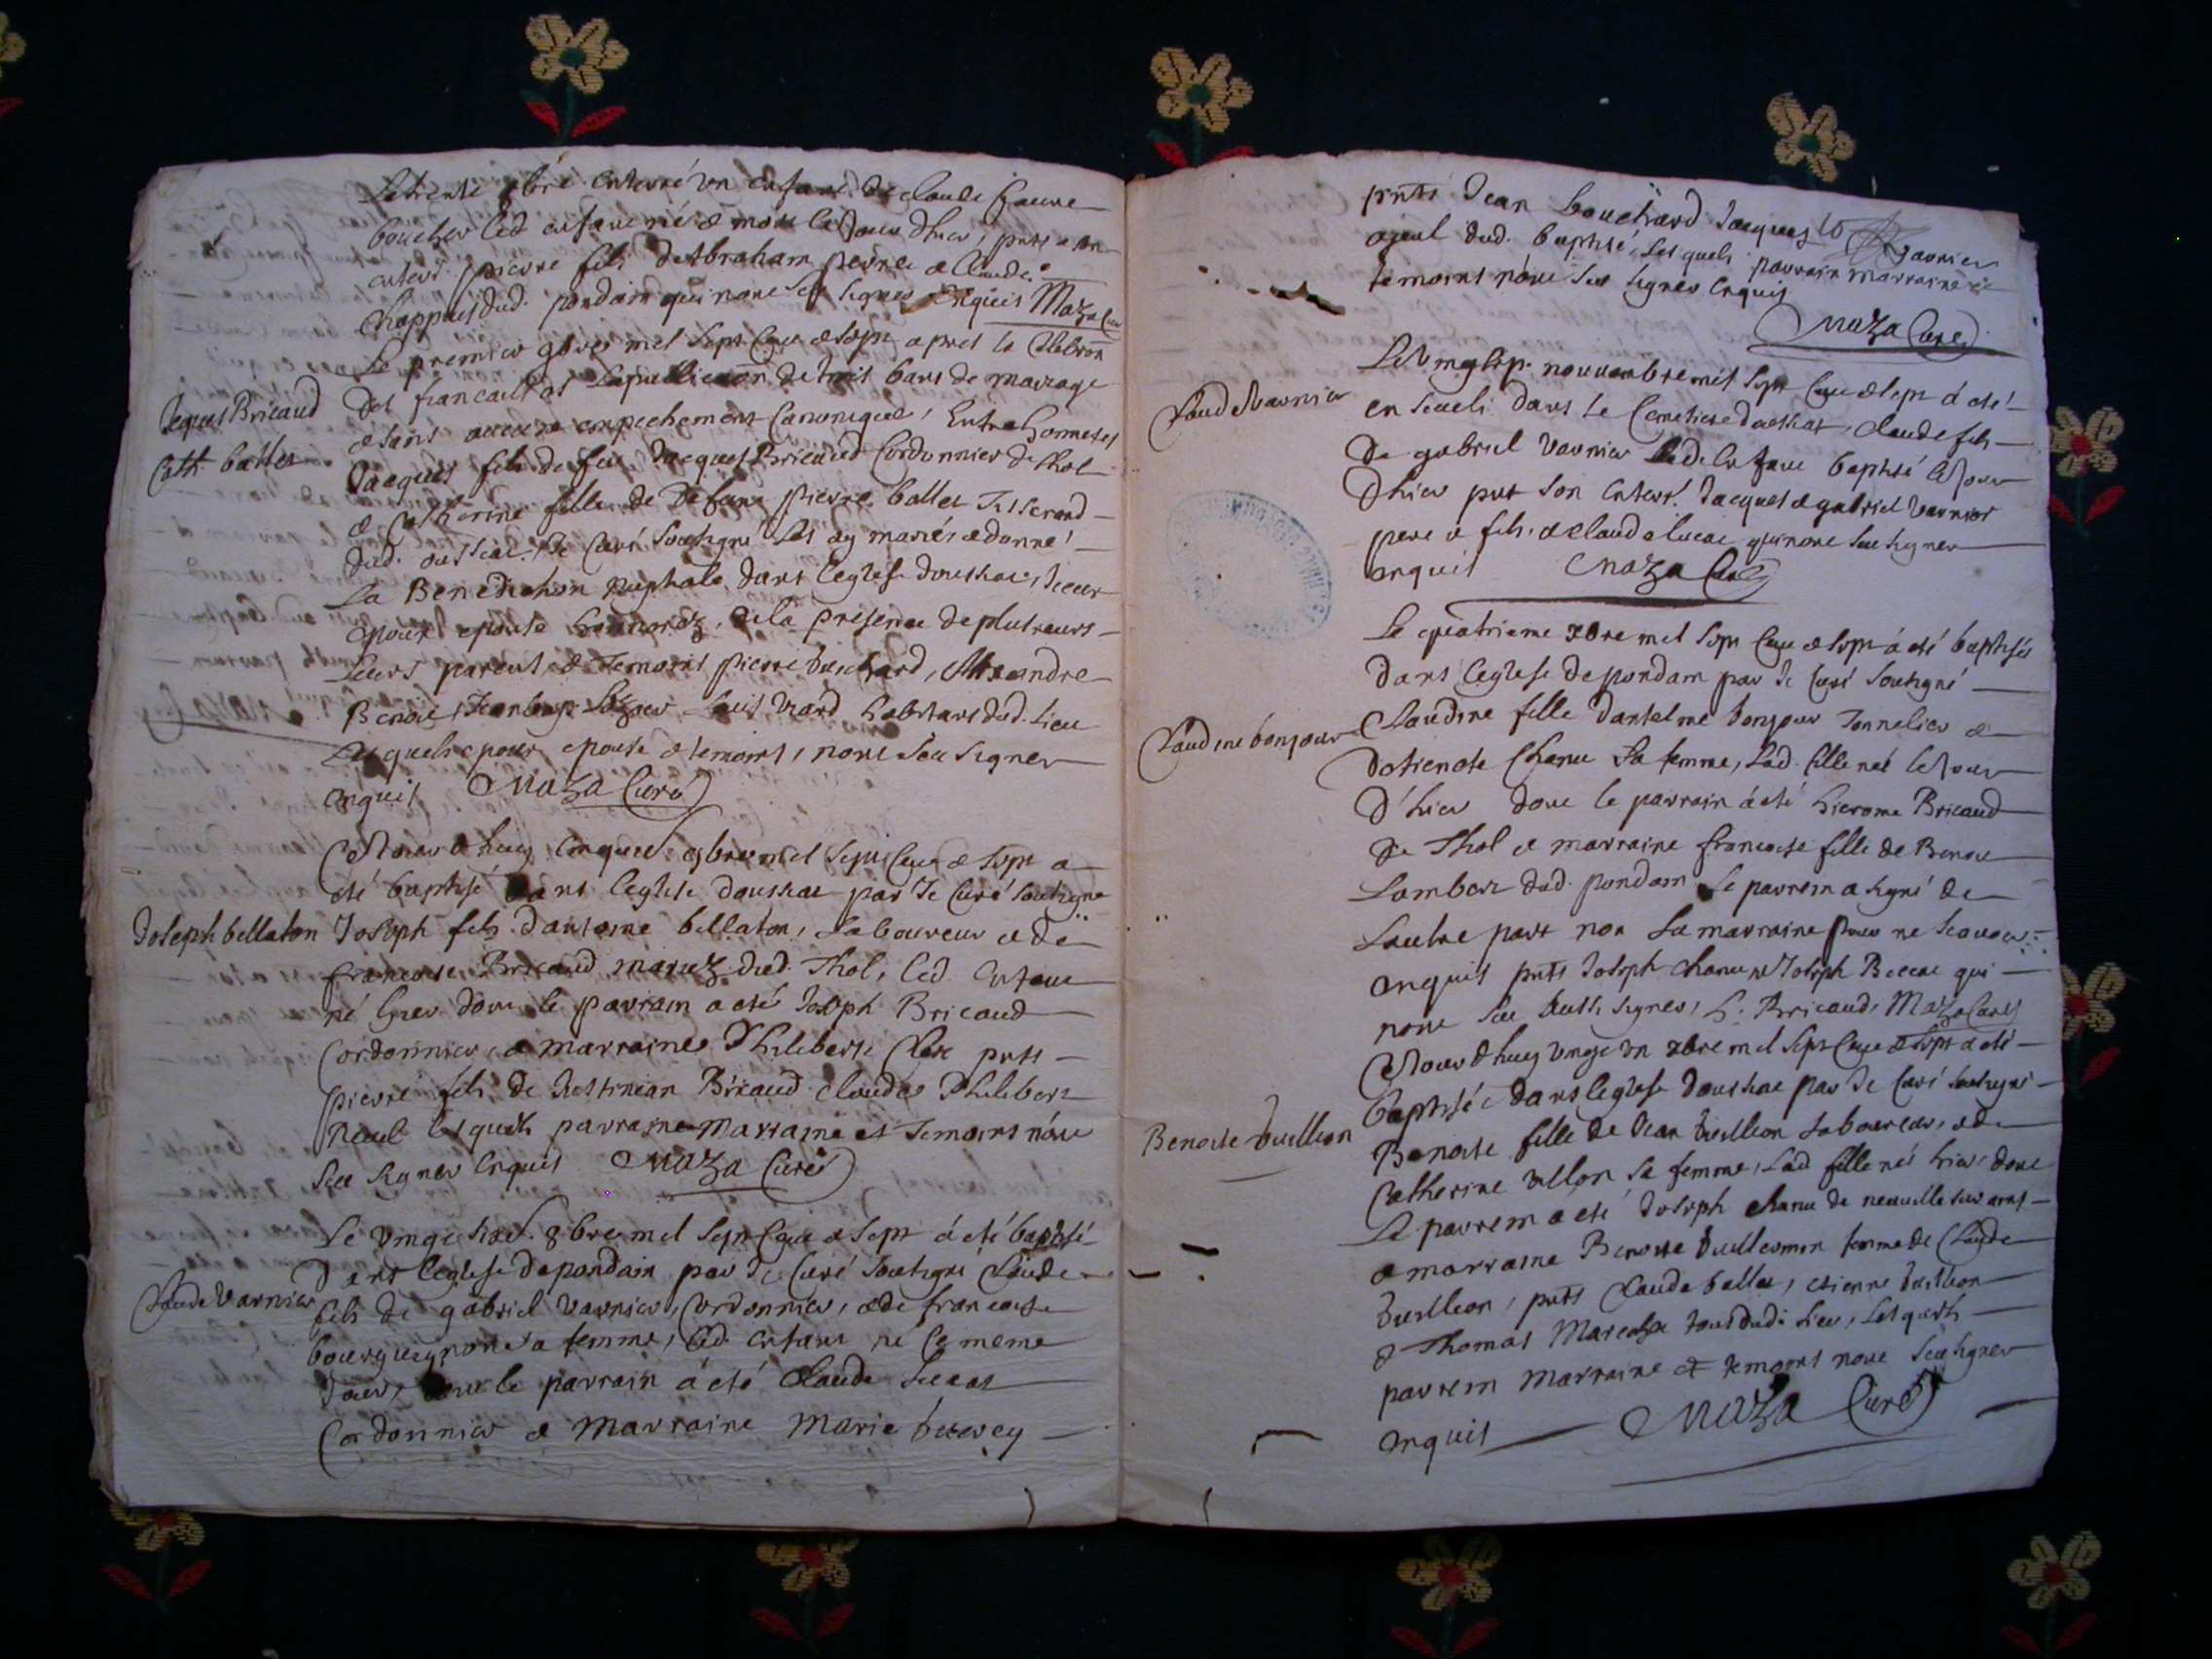 Le trente 7bre enterré un enfant de claude faure
boucher led enfant né & mort le Jour dhier, pnts a son
enterr. pierre fils d'abraham pevrle & claude
Chappuis dud. pondain qui nont sceu signer enquis Maza Curé
Le premier 9bre mil sept cent & sept apres la Celebron
des fiancailles la publication de trois bans de mariage
& sans aucune empechement Canonique, Entre honnestes
Jaques Bricaud
Cath. ballet
Jacques fils de feu Jacques Bricaud Cordonnier de thol
& Catherine fille de defunt pierre ballet Tisserand
dud. oussiat. Je Curé soussigné Les ay mariés & donné
La Benediction nuptiale dans leglise doussiat, Iceux
epoux epouse honnorez, de la presence de plusieurs
leurs parents & Temoins pierre buschard, Alexandre
Benoit, Jean bap. Louis viard habitans dud. Lieu
Lesquels epoux epouse & temoins, nont sceu signer
enquis Maza Curé
Ce Jourdhuy cinquie. 9bre mil sept cent & sept a
été baptisé dans leglise doussiat par Je Curé soussigné
Joseph bellaton
Joseph fils dantoine bellaton, Laboureur & de
francoise Bricaud mariez dud. Thol, led. Enfant
né hier dont le parrain a été Joseph Bricaud
Cordonnier, & marraine Philiberte Clerc pnts
pierre fils de Bricaud claude Philibert
lesquels parraine marraine et Temoins nont
sceu signer Enquis Maza Curé
Le vingt six. 8bre mil sept cent & sept á eté baptisé
Dans leglise de pondain par Je Curé soussigné Claude
Claude varnier
fils de gabriel varnier, Cordonnier, & de francoise
bourguignon sa femme, led. enfant né le meme
Jour, dont le parrain á eté Claude Lucat
Cordonnier & Marraine Marie
pnts Jean bouchard Jacques varnier
ayeul dud. baptisé, Lesquels parrain marraine &
temoins nont sceu signer enquis
Maza Curé
Claude varnier
Le vingt sep. nouvembre mil sept cent & sept á eté
enseveli dans le Cemetiere doussiat, claude fils
de gabriel varnier led. enfant baptisé le Jour
Dhier pnt son enterr. Jacques & gabriel varnier
pere & fils. & claude lucat qui nont sceu signer
enquis Maza Curé
Le quatrieme Xbre mil sept cent & sept á eté baptisée
dans leglise de pondain par Je Curé soussigné
Claudine bonjour
Claudine fille dantelme bonjour Tonnelier &
detienete Chanu sa femme, Lad. fille neé le Jour
D'hier dont le parrain á eté hierome Bricaud
de Thol et marraine francoise fille de Benoit
Lambert dud. pondain Le parrein a signé de
Lautre part non La marraine pour ne scavoir
enquis pnts Joseph chanu & Joseph Beccat qui
nont sceu aussi signer, h. Bricaud, Maza Curé
Ce Jourdhuy vingt un Xbre mil sept cent & sept a eté
baptisée dans leglise doussiat par Je Curé soussigné
Benoite Vuillion
Benoite fille de Jean Vuillion Laboureur, & de
Catherine vellon sa femme, Lad. fille neé hier dont
Le parrein a eté Joseph chanu de neuville sur ains
& marraine Benoite Vuillermin femme de Claude
Vuillion, pnts Claude ballet, etienne Vuillion
& Thomas tous dud. Lieu, Lesquels
parrein marraine & temoins nont sceu signer
enquis Maza Curé